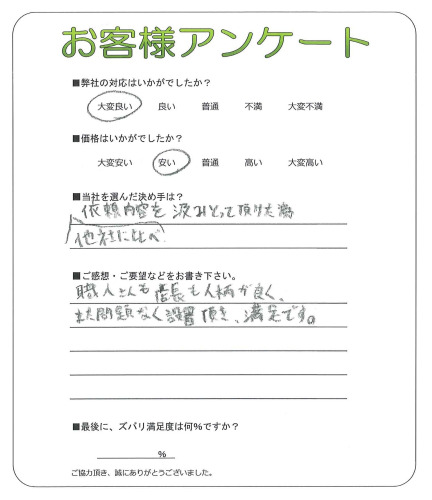 お客様アンケート
■弊社の対応はいかがでしたか?
大変良い 良い 普通 不満 大変不満
■価格はいかがでしたか?
大変安い 安い 普通 高い 大変高い
■当社を選んだ決め手は?
依頼内容を汲みとって頂けた為
他社に比べ
■ご感想・ご要望などをお書き下さい。
職人さんも店長も人柄が良く、
また問題なく設置頂き、満足です。
■最後に、ズバリ満足度は何%ですか?
%
ご協力頂き、誠にありがとうございました。